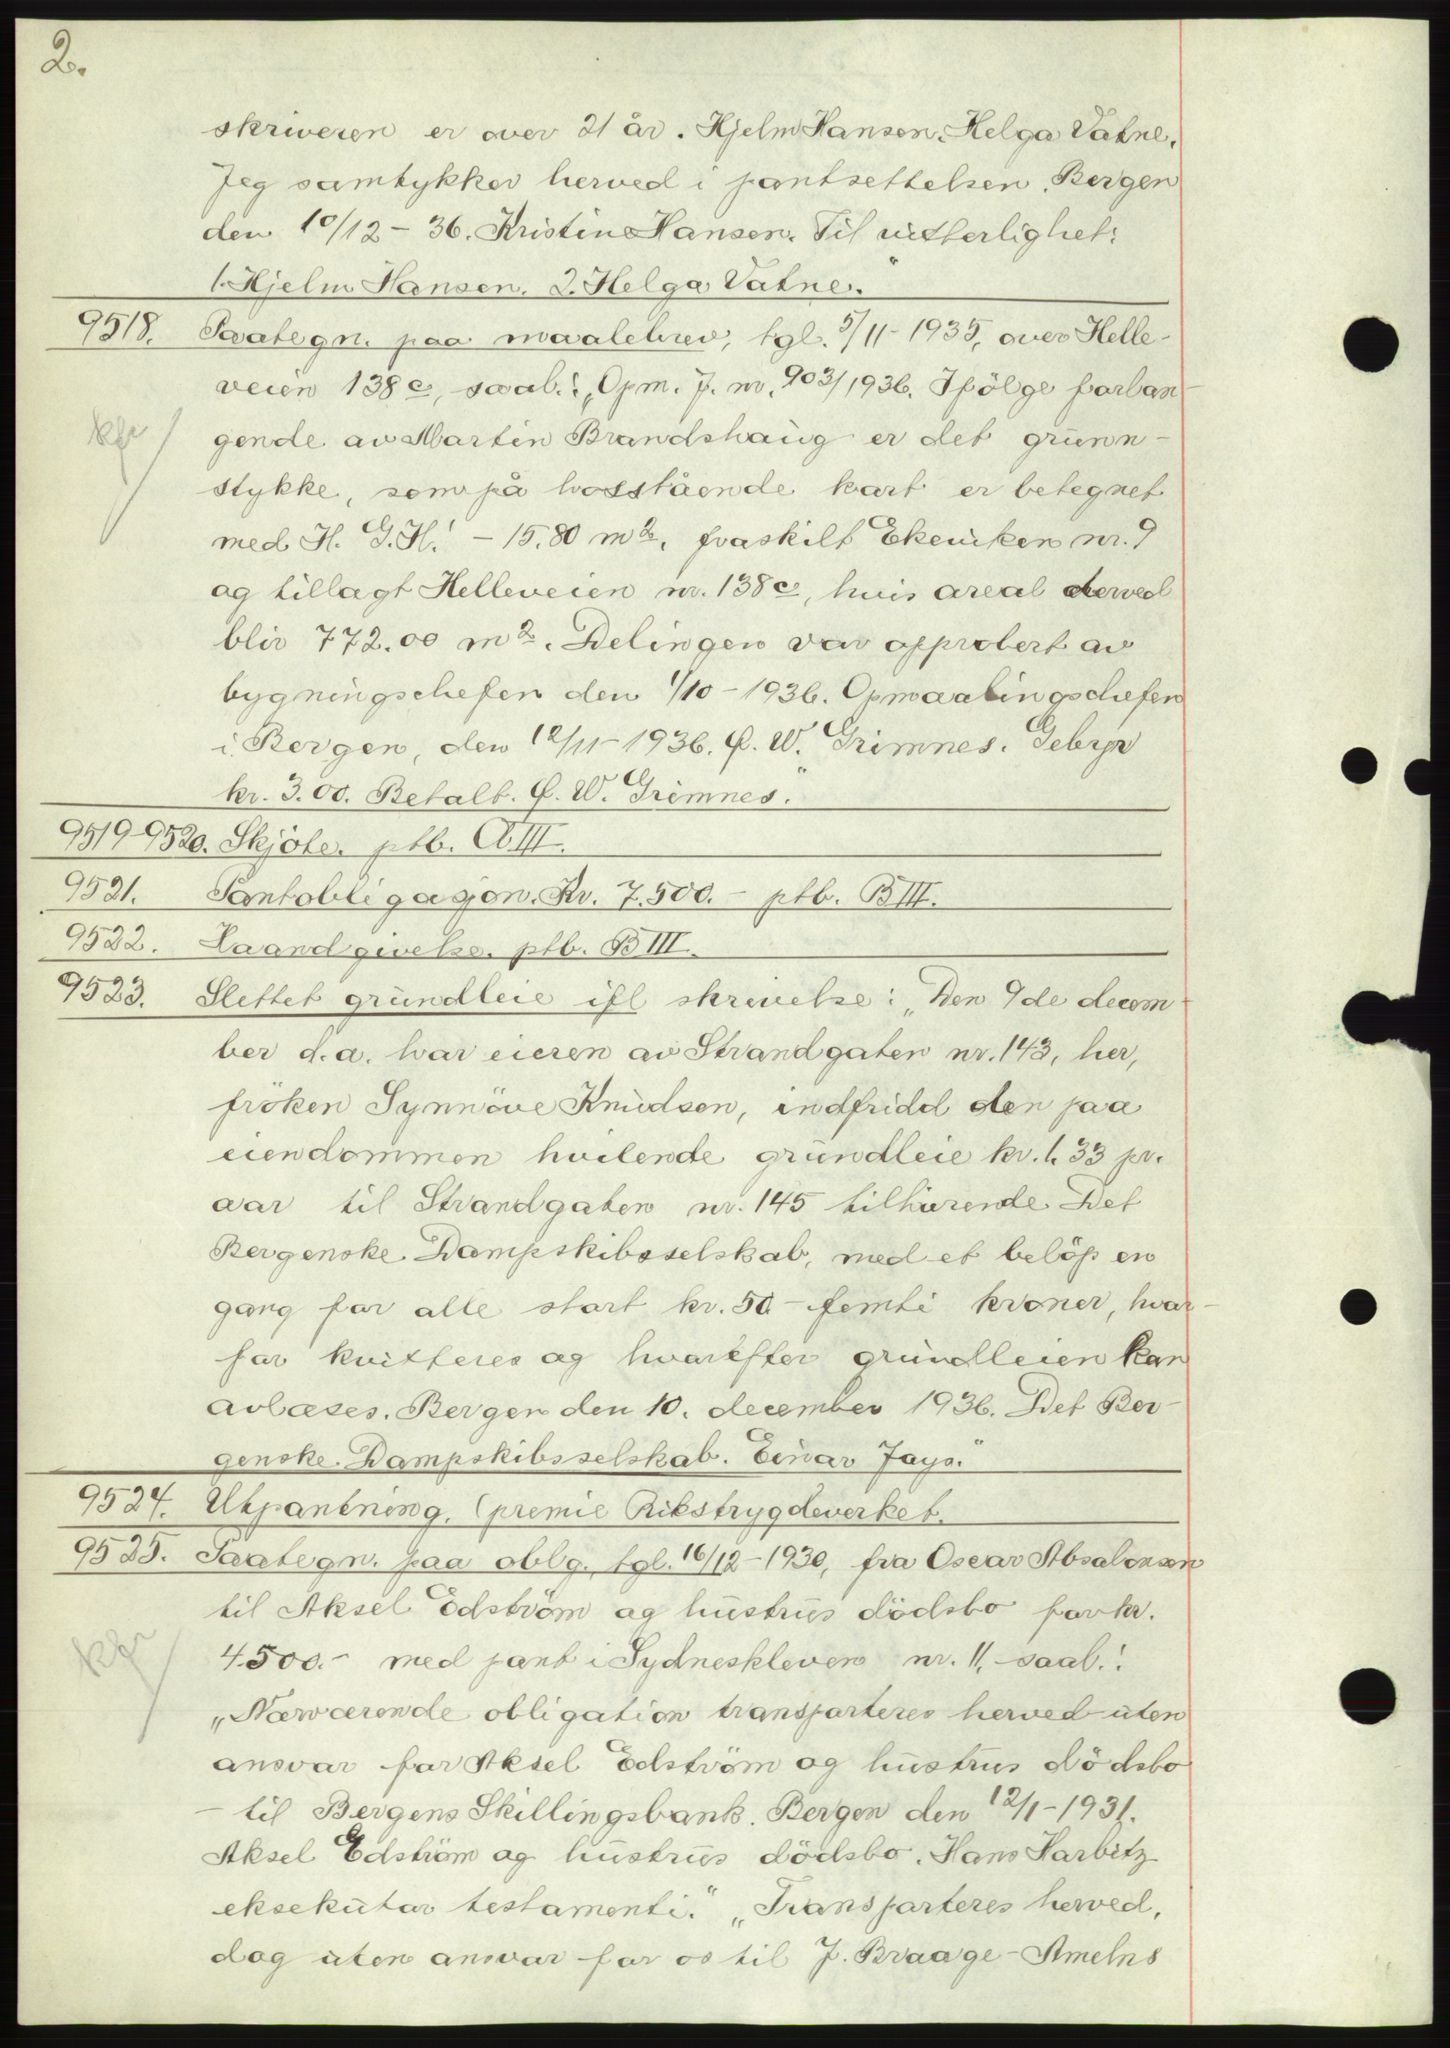 2.
skriveren er over 21 år. Hjelm Hansen. Helga Vatne.
Jeg samtykker herved i pantsettelsen. Bergen
den 10/12 - 36. Kristine Hansen. Til vitterlighet:
1. Hjelm Hansen. 2. Helga Vatne."
9518. Paategn. paa maalebrev, tgl. 5/11 - 1935, over Helle-
veien 138 c, saal.: "Opm. J. nr. 903/1936. Ifölge forlan-
kfr gende av Martin Brandshaug er det grunn-
stykke, som på hosstående kart er betegnet
med H. G. H.' - 15.80 m2, fraskilt Ekeviken nr. 9
og tillagt Helleveien nr. 138 c, hvis areal derved
blir 772.00 m2. Delingen var approbert av
bygningschefen den 1/10 - 1936. Opmaalingschefen
i Bergen, den 12/11 - 1936. C. W. Grimnes. Gebyr
kr. 3.00. Betalt. C. W. Grimnes."
9519-9520. Skjöte. ptb. A III.
9521. Pantobligasjon. Kr. 7.500.- ptb. B III.
9522. Haandgivelse. ptb. B III.
9523. Slettet grundleie ifl skrivelse: "Den 9de decem
ber d.a. har eieren av Strandgaten nr. 143, her,
fröken Synnöve Knudsen, indfridd den paa
eiendommen hvilende grundleie kr. 1.33 pr.
aar til Strandgaten nr. 145 tilhörende Det
Bergenske Dampskibsselskab, med et belöp en
gang for alle stort kr. 50 - femti kroner, hvor-
for kvitteres og hvorefter grundleien kan
avlæses. Bergen den 10. december 1936. Det Ber-
genske Dampskibsselskab. Einar Jays."
9524. Utpantning. (premie Rikstrygdeverket.
9525. Paategn. paa oblg., tgl. 16/12 - 1930, fra Oscar Absalonsen
til Aksel Edström og hustrus dödsbo for kr.
kfr 4500.- med pant i Sydneskleven nr. 11, saal.:
"Nærværende obligation transporteres herved uten
ansvar for Aksel Edström og hustrus dödsbo
- til Bergens Skillingsbank. Bergen den 12/1 - 1931.
Aksel Edström og hustrus dödsbo. Hans Harbitz
eksekutor testamenti." "Transporteres herved,
dog uten ansvar for os til J. Braage-Amelns